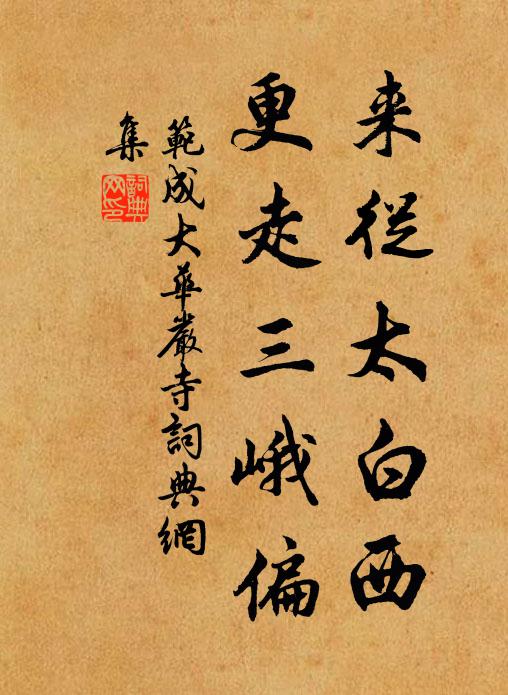 来從太白西
更走三峨偏
範成大華嚴寺詞典網
集
詞典
网印